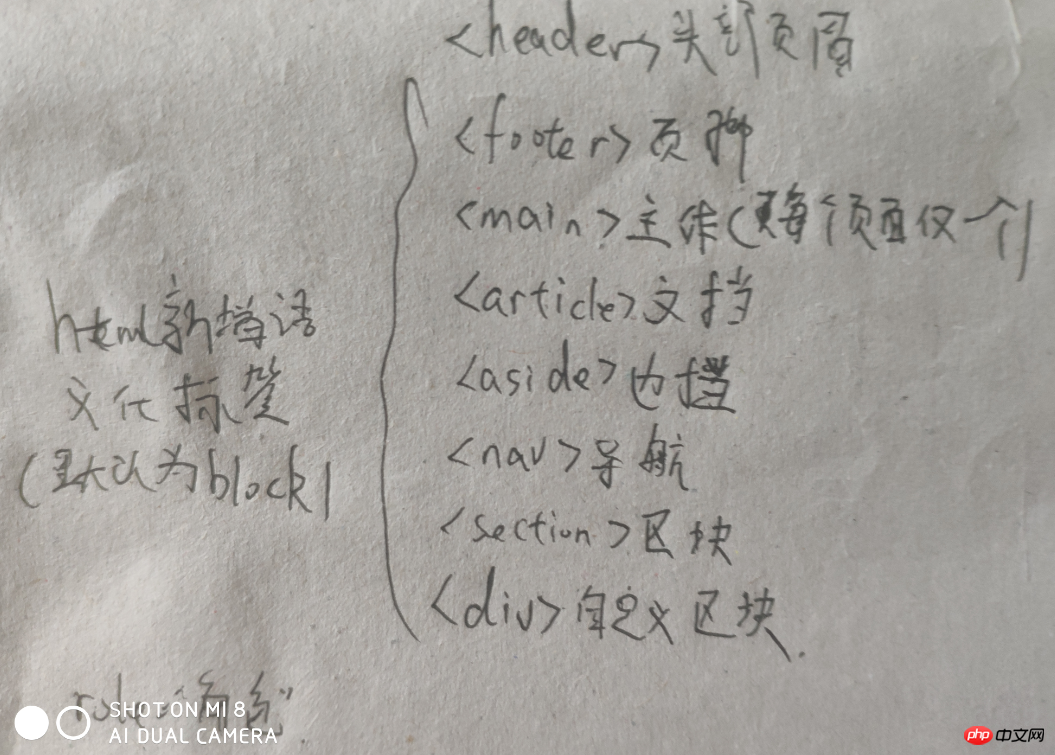 <header>头部页眉
<footer>页脚
<main>主体(每个页面仅一个)
<article>文挡
<aside>边挡
<nav>导航
<section>区块
<div>自定义区块.
html新增语
义化标签
(默认为block)
SHOT ON MI 8
AI DUAL CAMERA
php中文网